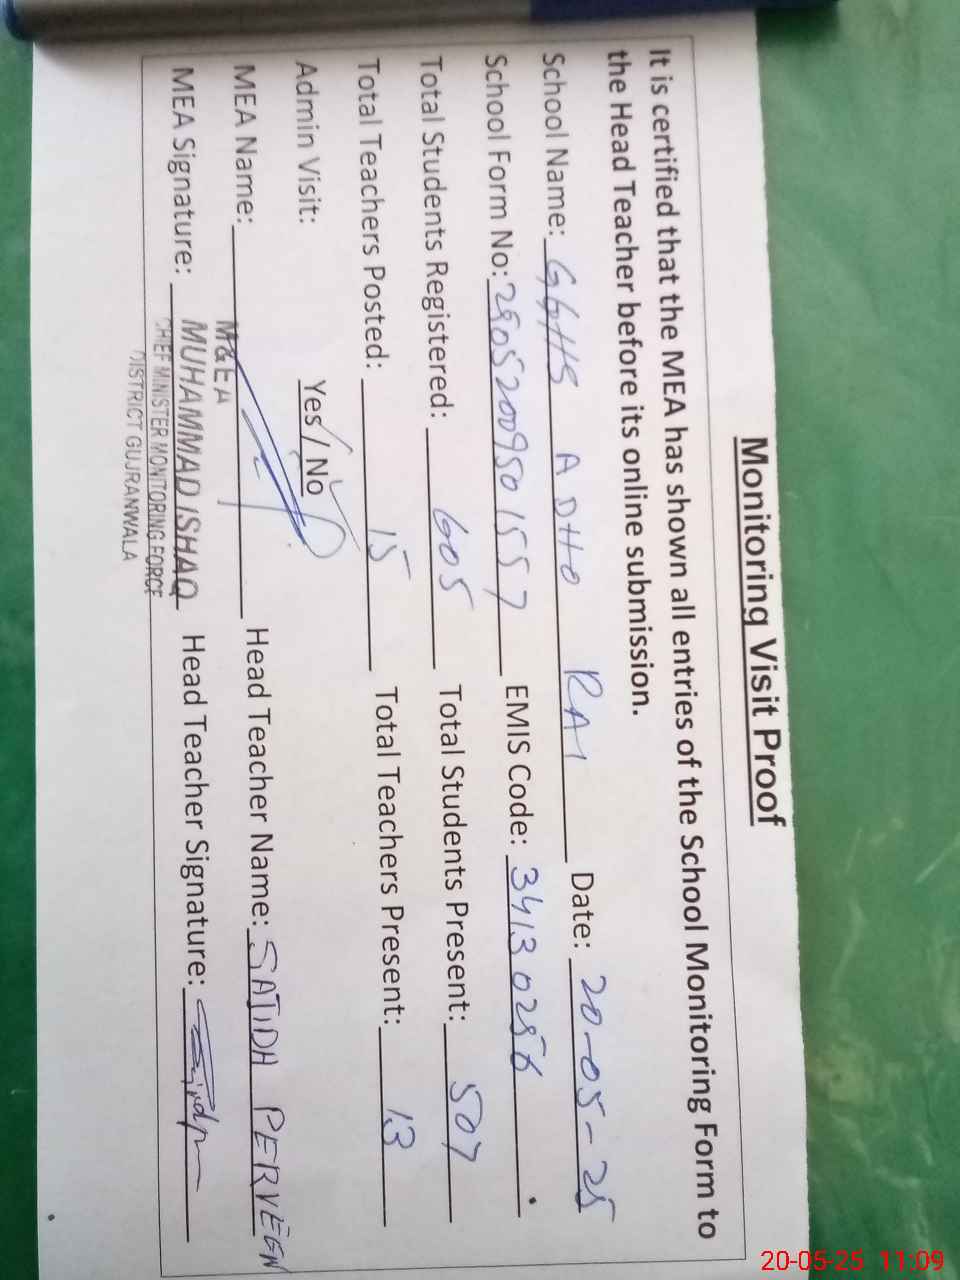 Monitoring Visit Proof
It is certified that the MEA has shown all entries of the School Monitoring Form to
the Head Teacher before its online submission.
School Name: GGHS ADHO RAI Date: 20-05-25
School Form No: 25052009501557 EMIS Code: 34130256
Total Students Registered: 605 Total Students Present: 507
Total Teachers Posted: 15 Total Teachers Present: 13
Admin Visit: Yes / No
MEA Name: M&EA Head Teacher Name: SAJIDA PERVEEN
MEA Signature: MUHAMMAD ISHAQ Head Teacher Signature:
CHIEF MINISTER MONITORING FORCE
DISTRICT GUJRANWALA
20-05-25 11:09